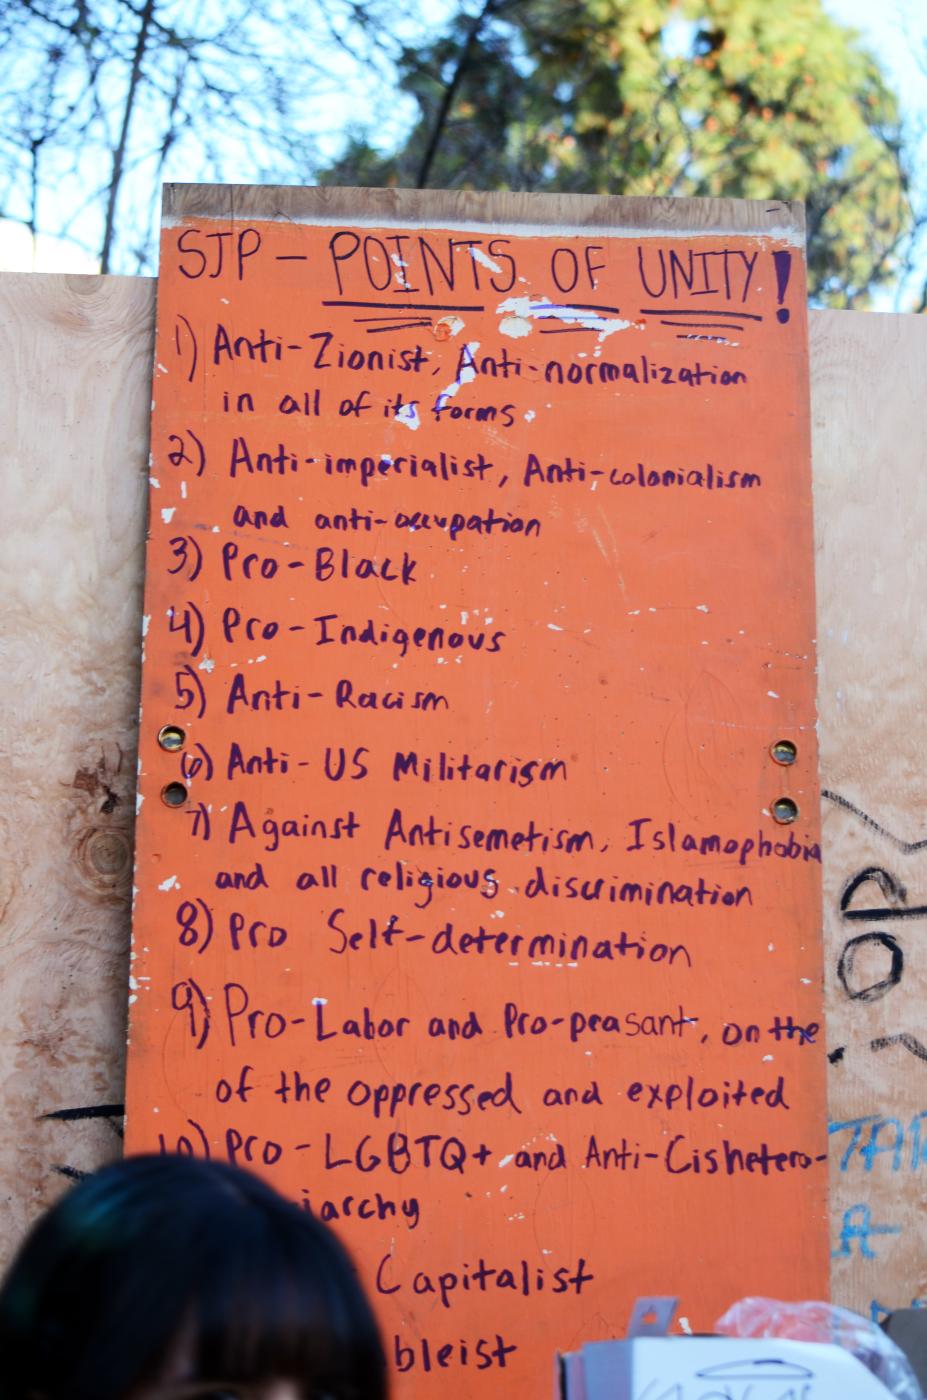 SJP – POINTS OF UNITY!
1) Anti-Zionist, Anti-normalization
in all of its forms
2) Anti-imperialist, Anti-colonialism
and anti-occupation
3) Pro-Black
4) Pro-Indigenous
5) Anti-Racism
6) Anti-US Militarism
7) Against Antisemetism, Islamophobia
and all religious discrimination
8) Pro Self-determination
9) Pro-Labor and Pro-peasant, on the
of the oppressed and exploited
10) Pro-LGBTQ+ and Anti-Cishetero-
iarchy
Capitalist
bleist